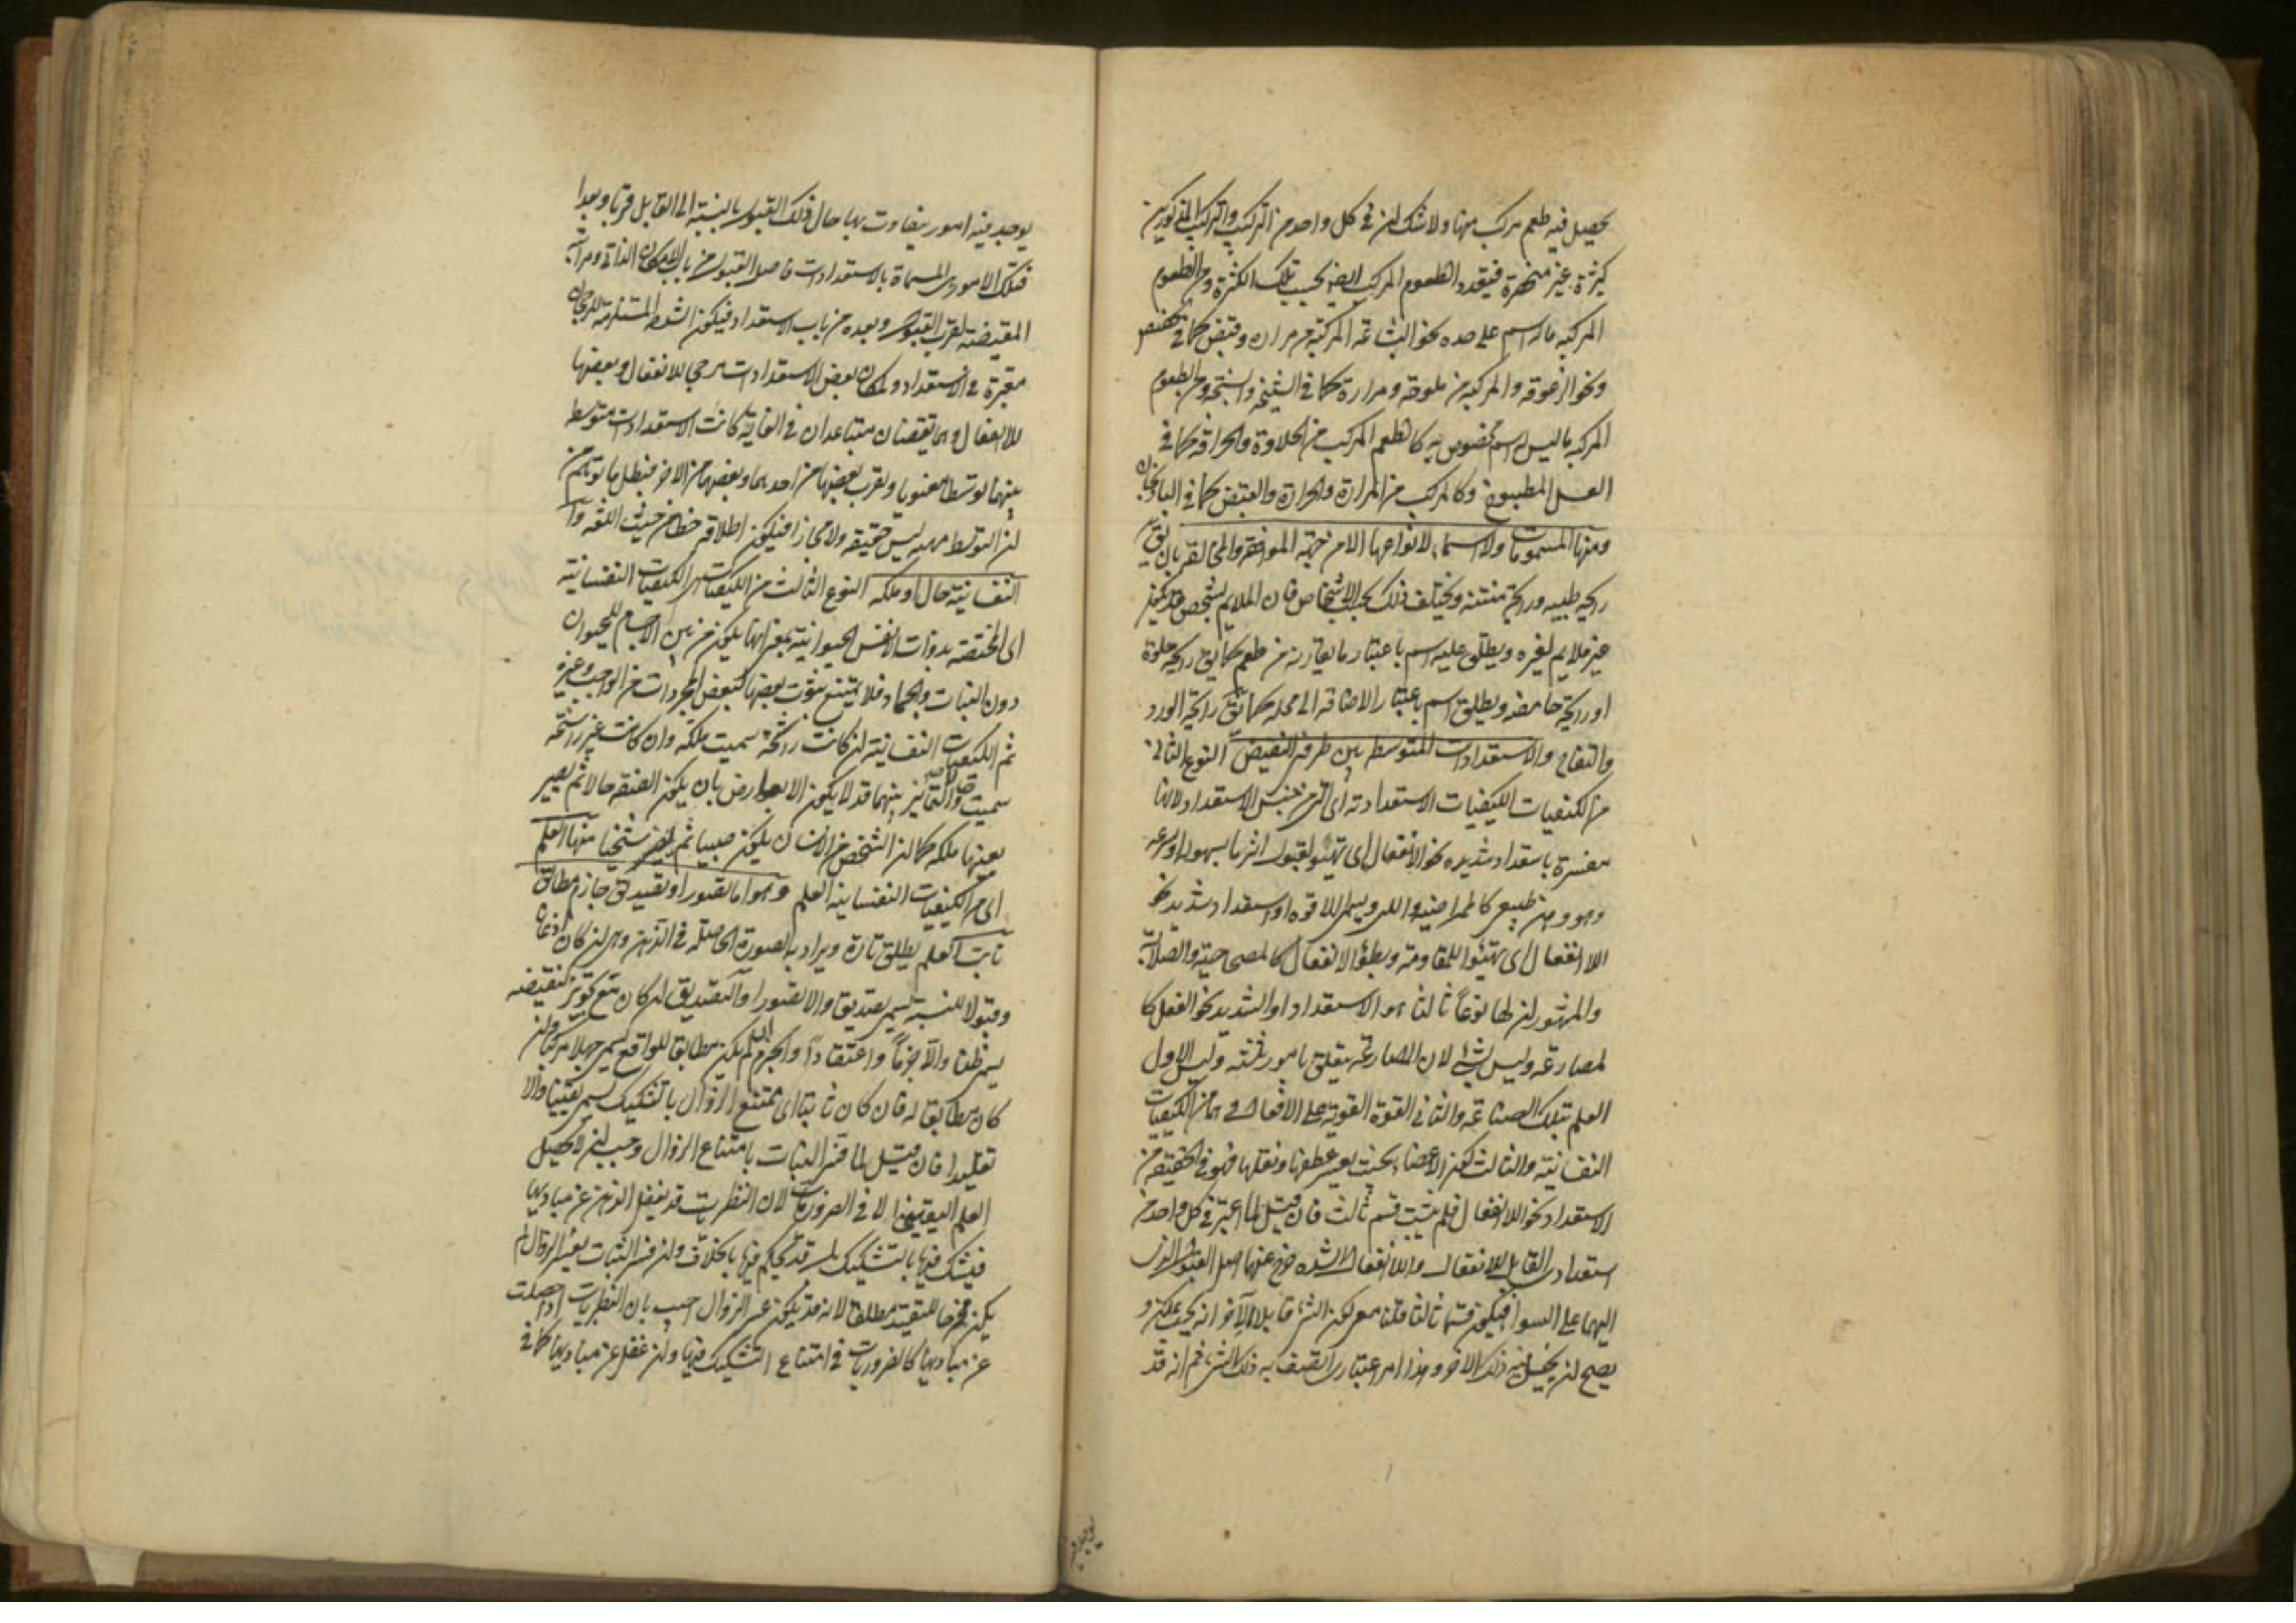 يحصل فيه طعم مركب منها ولا شك ان في كل واحد من التركيب والتركب المذكورين
كثرة غير منحصرة فيتعدد الطعوم المركبة ايضا بحسب تلك الكثرة ومن الطعوم
المركبة ما له اسم على حده نحو البشاعة المركبة من مرارة وقبض كما في الحضض
ونحو الزعوقه والمركبة من ملوحة ومرارة كما في الشيحة والسبخة ومن الطعوم
المركبة ما ليس له اسم مخصوص به كالطعم المركب من الحلاوة والحرافة كما في
العسل المطبوخ وكالمركب من المرارة والحرارة والقبض كما في الباذنجان
ومنها المشمومات ولا اسماء لانواعها الا من جهة الموافقة والمخالفة بان يق
رايحة طيبه ورايحة منتنة ويختلف ذلك بحسب الاشخاص فان الملايم لشخص قد يكون
غير ملايم لغيره ويطلق عليه اسم باعتبار ما يقارنه من طعم كما يق رايحة حلوة
او رايحة حامضه ويطلق اسم باعتبار الاضافة الى محله كما يق رايحة الورد
والتفاح والاستعدادات المتوسطه بين طرفى النقيض النوع الثانى
من الكيفيات الكيفيات الاستعدادية اى التى من جنس الاستعداد لانها
مفسرة باستعداد شديد نحو الانفعال اى تهيئو لقبول اثر ما بسهولة او سرعه
وهو وهن طبيعى كالممراضيه واللين ويسمى اللاقوه او استعداد شديد نحو
اللاانفعال اى تهيئوا للمقاومة وبطؤ الانفعال كالمصحاحية والصلابة
والمشهور ان لها نوعا ثالثا هو الاستعداد الشديد نحو الفعل كا
لمصارعة وليس بشئ لان المصارعة يتعلق بامور ثلثه وليس الاول
العلم بتلك الصناعة والثانى القوة القوية على الافعال وهما من الكيفيات
النفسانية والثالث كون الاعضاء بحيث يعسر عطفها ونقلها فهو في الحقيقة من
الاستعداد نحو اللاانفعال فلم يثبت قسم ثالث فان قيل لما اعتبر فى كل واحد من
استعدادى القابل للانفعال واللاانفعال الشده خرج عنهما اصل القبول الذى
اليهما على السوا فيكون قسما ثالثا قلنا معنى كون الشئ قابلا لآخر انه بحيث يمكن و
يصح ان يحصل فيه ذلك الاخر وهذا امر اعتبارى اتصف به ذلك الشئ ثم انه قد
يوجد فيه
يوجد فيه امور يتفاوت بها حال ذلك القبول بالنسبة الى القابل قربا وبعدا
فتلك الامور هى المسماة بالاستعدادات فاصل القبول من باب الامكان الذاتى ومراتبه
المقتضية لقرب القبول وبعده من باب الاستعداد فيكون الشده المستلزمة للرجحان
معتبرة فى الاستعداد ولما كان بعض الاستعدادات مرجحا للانفعال وبعضها
للاانفعال وهما نقيضان متباعدان في الغاية كانت الاستعدادات متوسطة
بينهما توسطا معنويا ويقرب بعضها من احدهما وبعضها من الاخر فبطل ما توهم من
ان التوسط ههنا ليس حقيقة ولا مجازا فيكون اطلاقه خطا من حيث اللغة وا
النفسانية حال او ملكه النوع الثالث من الكيفيات هى الكيفيات النفسانية
اى المختصة بذوات الانفس الحيوانية بمعنى انها يكون من بين الاجسام للحيوان
دون النبات والجماد فلا يمتنع ثبوت بعضها لبعض المجردات من الواجب وغيره
ثم الكيفيات النفسانية ان كانت راسخة سميت ملكه وان كانت غير راسخة
سميت حالا والتمايز بينهما قد لا يكون الا بعوارض بان يكون الصفة حالا ثم يصير
بعينها ملكه كما ان الشخص من الانسان يكون صبيا ثم يصير شيخا منها العلم
اى من الكيفيات النفسانية العلم وهو اما تصور او تصديق جازم مطابق
ثابت العلم يطلق تارة ويراد به الصورة الحاصلة فى الذهن وهى ان كان اذعانا
وقبولا للنسبة يسمى تصديقا والا تصورا والتصديق ان كان مع تجويز لنقيضه
يسمى ظنا والا جزما واعتقادا والجزم ان لم يكن مطابقا للواقع يسمى جهلا مركبا وان
كان مطابقا له فان كان ثابتا اى ممتنع الزوال بالتشكيك يسمى يقينا والا
تقليدا فان قيل لما فسر الثبات بامتناع الزوال وجب ان لا يحصل
العلم اليقينى الا فى الضروريات لان النظريات قد يغفل الذهن عن مباديها
فيشك فيها بالتشكيك بل قد يحكم فيها بخلافه وان فسر الثبات بعسر الزوال لم
يكن مخرجا للتقليد مطلقا لانه قد يكون عسر الزوال اجيب بان النظريات اذا حصلت
عن مباديها كالضروريات فى امتناع التشكيك فيها وان غفل عن مباديها كما فى